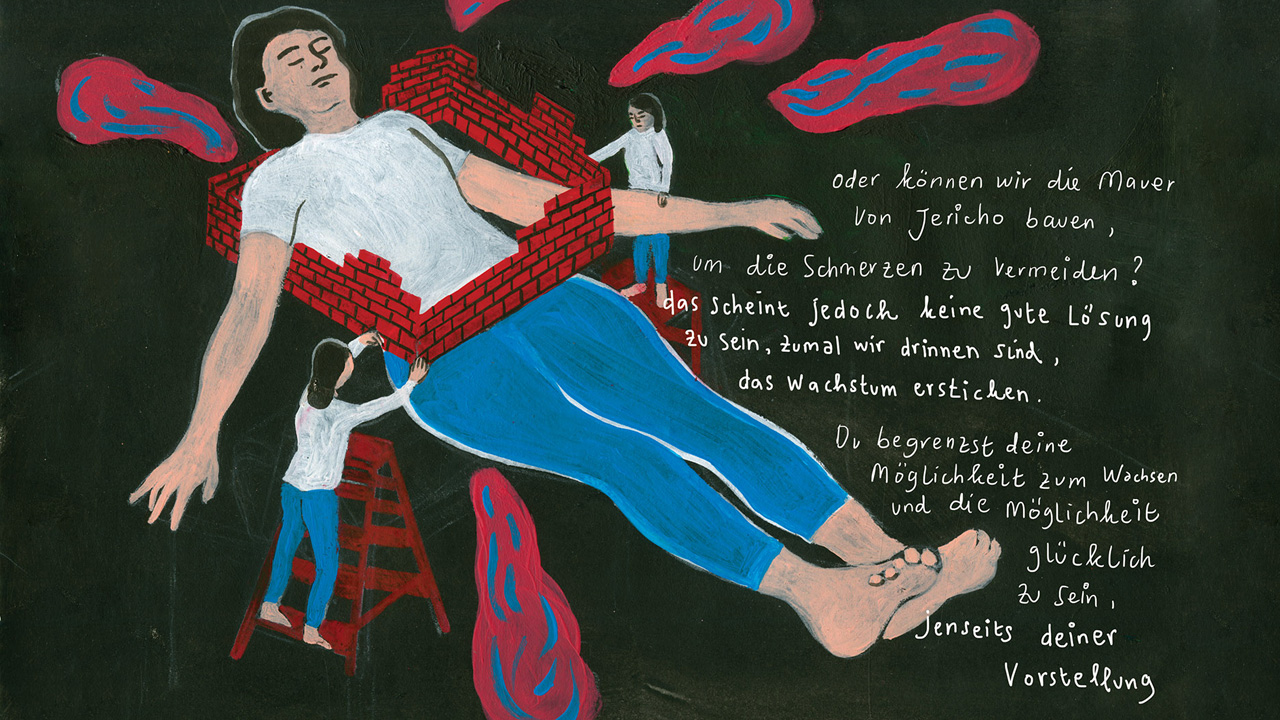 oder können wir die Mauer
von Jericho bauen,
um die Schmerzen zu vermeiden?
das scheint jedoch keine gute Lösung
zu sein, zumal wir drinnen sind,
das Wachstum ersticken.
Du begrenzst deine
Möglichkeit zum Wachsen
und die Möglichkeit
glücklich
zu sein,
jenseits deiner
Vorstellung